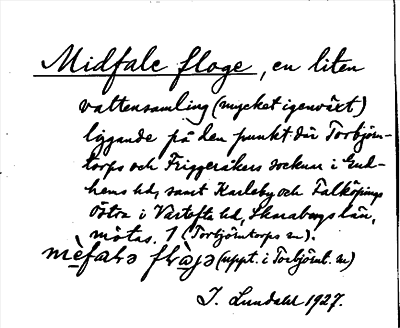 Midfale floge, en liten
vattensamling (mycket igenväxt)
liggande på den punkt där Torbjörn-
torps och Friggeråkers socknar i Gud-
hems hd, samt Karleby och Falköpings
Östra i Vartofta hd, Skaraborgs län,
mötas. 1 (Torbjörntorps sn).
(uppt. i Torbjörnt. sn)
J. Lundahl 1927.